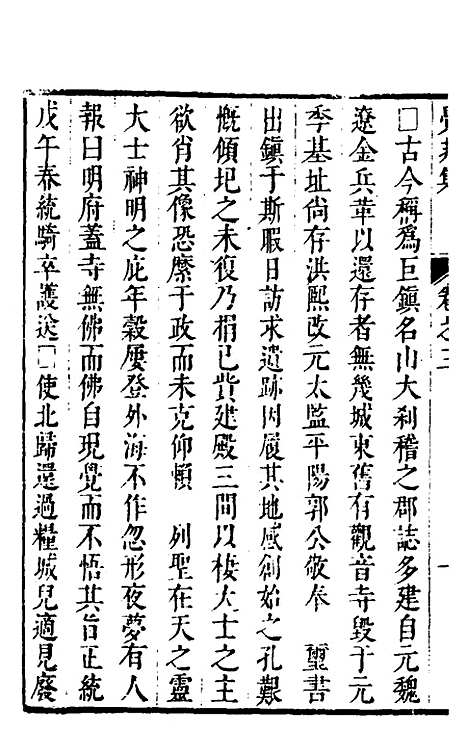 卷之三
一
□古今稱爲巨鎮名山大刹稽之郡誌多建自元魏
遼金兵革以還存者無幾城東舊有觀音寺毀于元
季基址尚存洪熙改元太監平陽郭公敬奉　璽書
出鎮于斯暇日訪求遺跡因履其地感創始之孔艱
慨傾圯之未復乃捐已貲建殿三間以棲大士之主
欲肖其像恐縻于政而未克仰頼　列聖在天之靈
大士神明之庇年穀屢登外海不作忽形夜夢有人
報曰明府蓋寺無佛而佛自現覺而不悟其旨正統
戊午春統騎卒護送□使北歸還過糧城兒適見廢